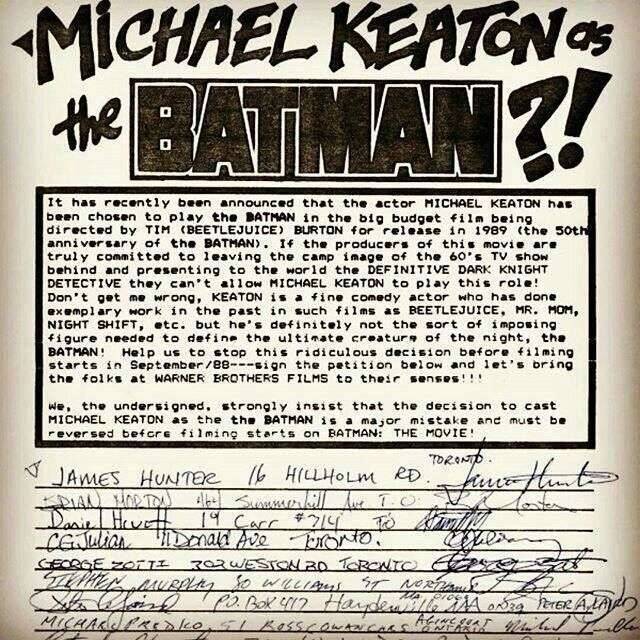 MICHAEL KEATON as
the BATMAN ?!
It has recently been announced that the actor MICHAEL KEATON has
been chosen to play the BATMAN in the big budget film being
directed by TIM (BEETLEJUICE) BURTON for release in 1989 (the 50th
anniversary of the BATMAN). If the producers of this movie are
truly committed to leaving the camp image of the 60's TV show
behind and presenting to the world the DEFINITIVE DARK KNIGHT
DETECTIVE they can't allow MICHAEL KEATON to play this role!
Don't get me wrong, KEATON is a fine comedy actor who has done
exemplary work in the past in such films as BEETLEJUICE, MR. MOM,
NIGHT SHIFT, etc. but he's definitely not the sort of imposing
figure needed to define the ultimate creature of the night, the
BATMAN! Help us to stop this ridiculous decision before filming
starts in September/88---sign the petition below and let's bring
the folks at WARNER BROTHERS FILMS to their senses!!!
We, the undersigned, strongly insist that the decision to cast
MICHAEL KEATON as the the BATMAN is a major mistake and must be
reversed before filming starts on BATMAN: THE MOVIE!
JAMES HUNTER 16 HILLHOLM RD. TORONTO.
BRIAN MORTON Summerhill Ave T.O.
Daniel 19 Carr #714 TO
CG Julian 11 Donald Ave Toronto.
GEORGE ZOTTI 302 WESTON RD TORONTO
STEPHEN MURPHY 30 WILLIAMS ST
P.O. BOX 417 Haydenville MA 01039 PETER
MICHAEL